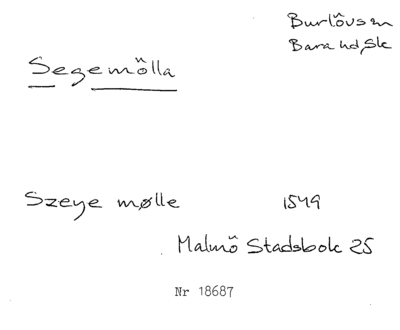 Burlövs sn
Bara hd, Sk
Segemölla
Szeye mølle 1549
Malmö Stadsbok 25
Nr 18687